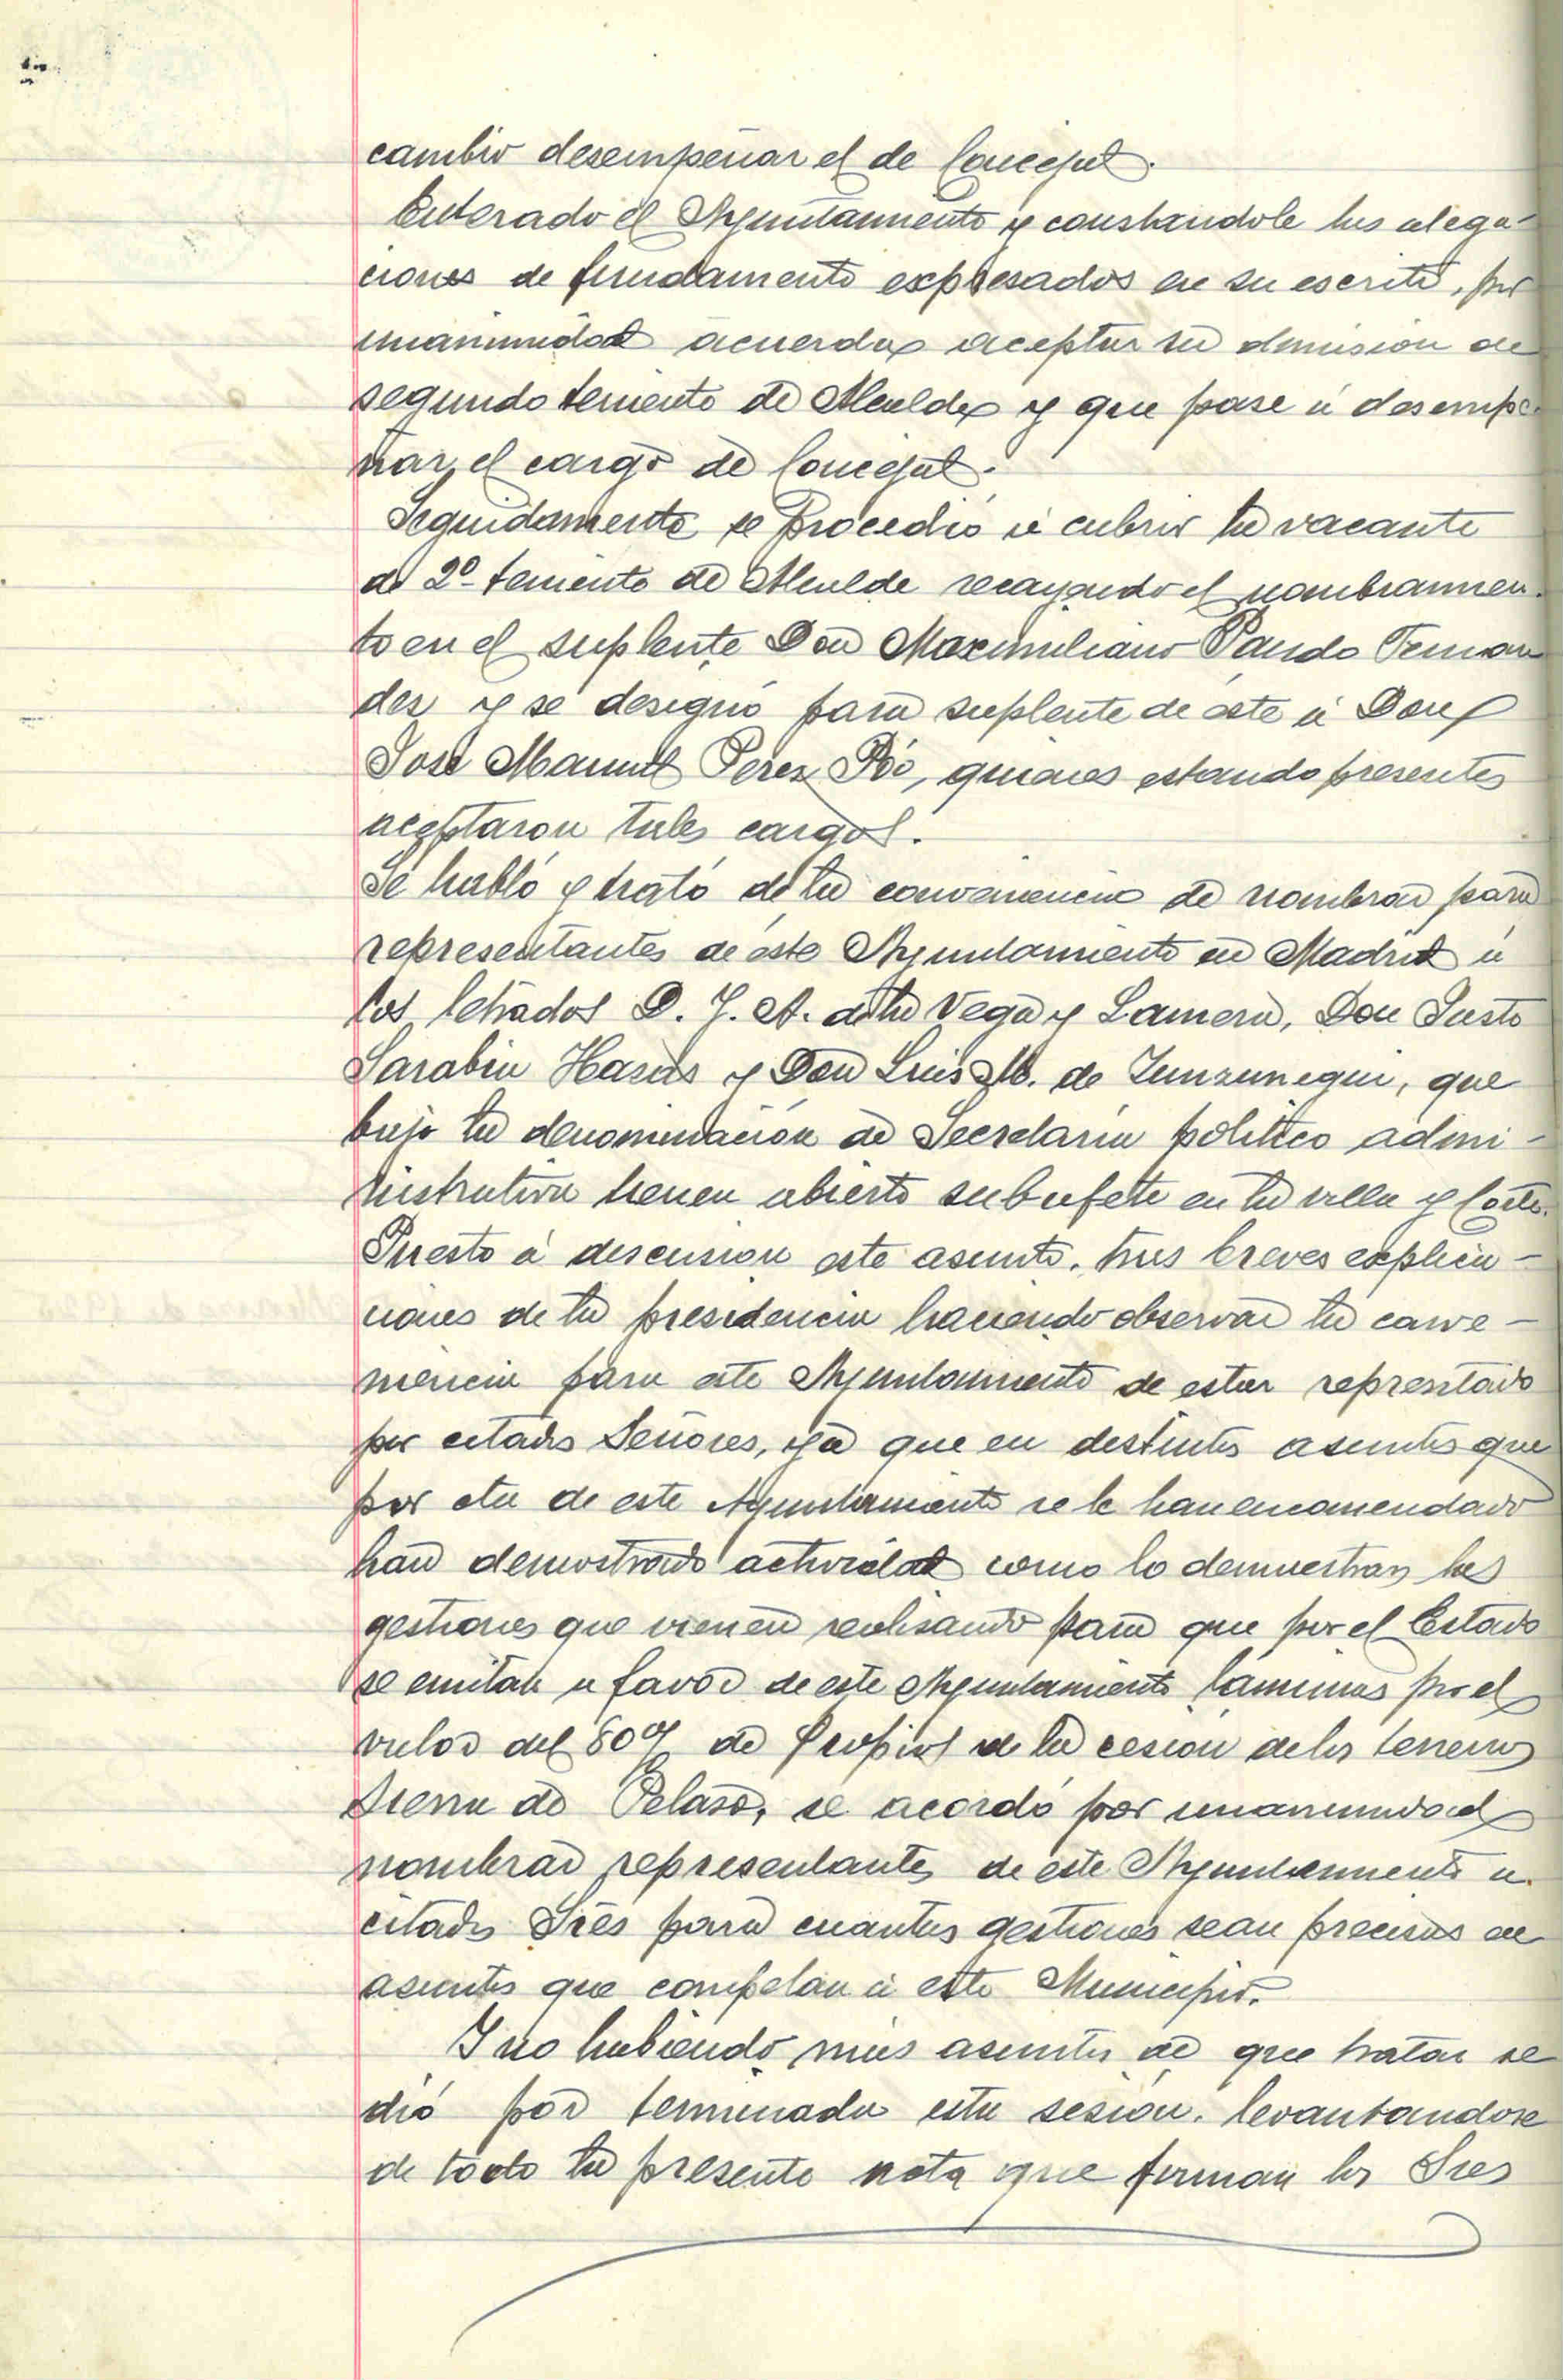 cambio desempeñar el de Concejal.
Enterado el Ayuntamiento y constandole las alega-
ciones de fundamento expresados en su escrito, por
unanimidad acuerda aceptar su dimision de
segundo teniente de Alcalde y que pase á desempe-
ñar el cargo de Concejal.
Seguidamente se procedió á cubrir la vacante
de 2º teniente de Alcalde recayendo el nombramien-
to en el suplente Don Maximiliano Pando Fernan
dez y se designó para suplente de éste á Don
José Manuel Perez Pió, quienes estando presentes
aceptaron tales cargos.
Se habló y trató de la conveniencia de nombrar para
representantes de éste Ayuntamiento en Madrid á
los letrados D. J. A. de la Vega y Lamera, Don Justo
Sarabia Hasas y Don Luis M. de Zunzunegui, que
bajo la denominación de Secretaría politico admi-
nistrativa tienen abierto su bufete en la villa y Corte.
Puesto á discusion este asunto, tras breves explica-
ciones de la presidencia haciendo observar la conve-
niencia para este Ayuntamiento de estar represetado
por citados Señores, ya que en distintos asuntos que
por cta de este Ayuntamiento se le han encomendado
han demostrado actividad como lo demuestran las
gestiones que vienen realisando para que por el Estado
se emitan a favor de este Ayuntamiento láminas por el
valor del 80% de Propios de la cesión de los terrenos
Sierra de Pelaso, se acordó por unanimidad
nombrar representantes de este Ayuntamiento a
citados Sres para cuantas gestiones sean precisas en
asuntos que competan á este Municipio.
Y no habiendo más asuntos de que tratar se
dió por terminada esta sesión, levantandose
de todo la presente nota que firman los Sres